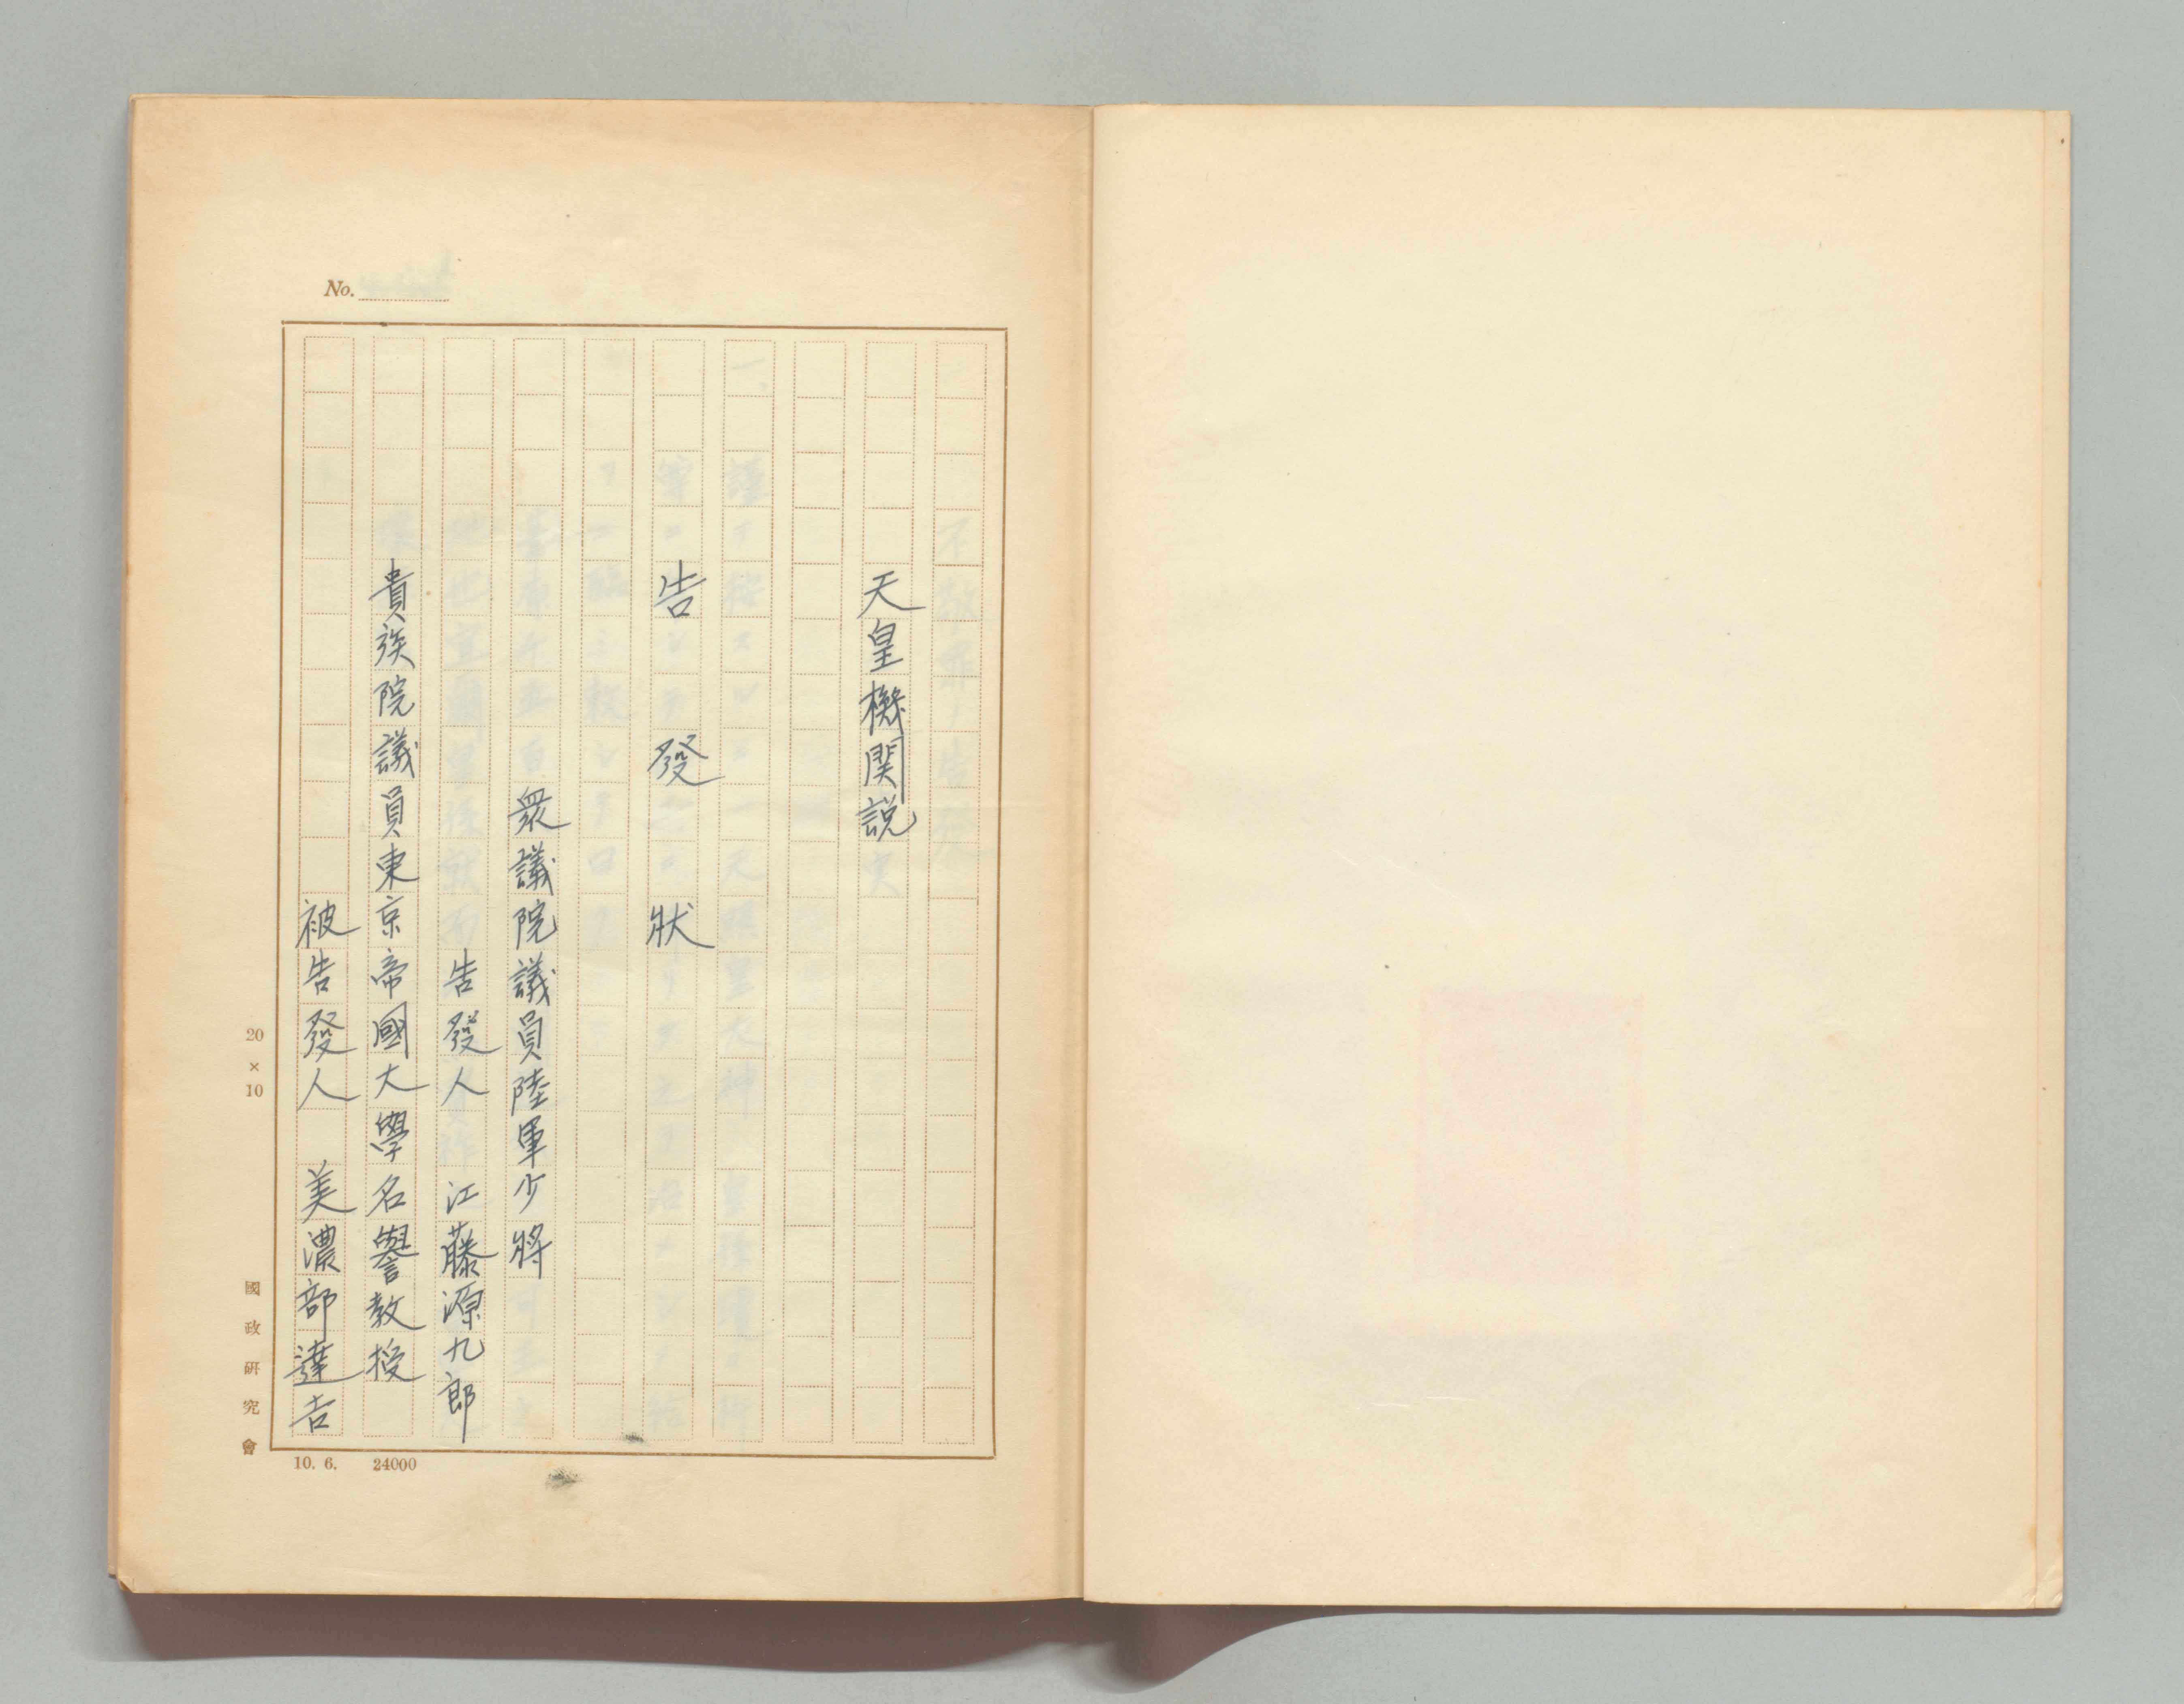 No.
天皇機関説
告發狀
衆議院議員陸軍少將
告發人 江藤源九郎
貴族院議員東京帝國大學名譽教授
被告發人 美濃部達吉
20×10
國政研究會
10. 6. 24000